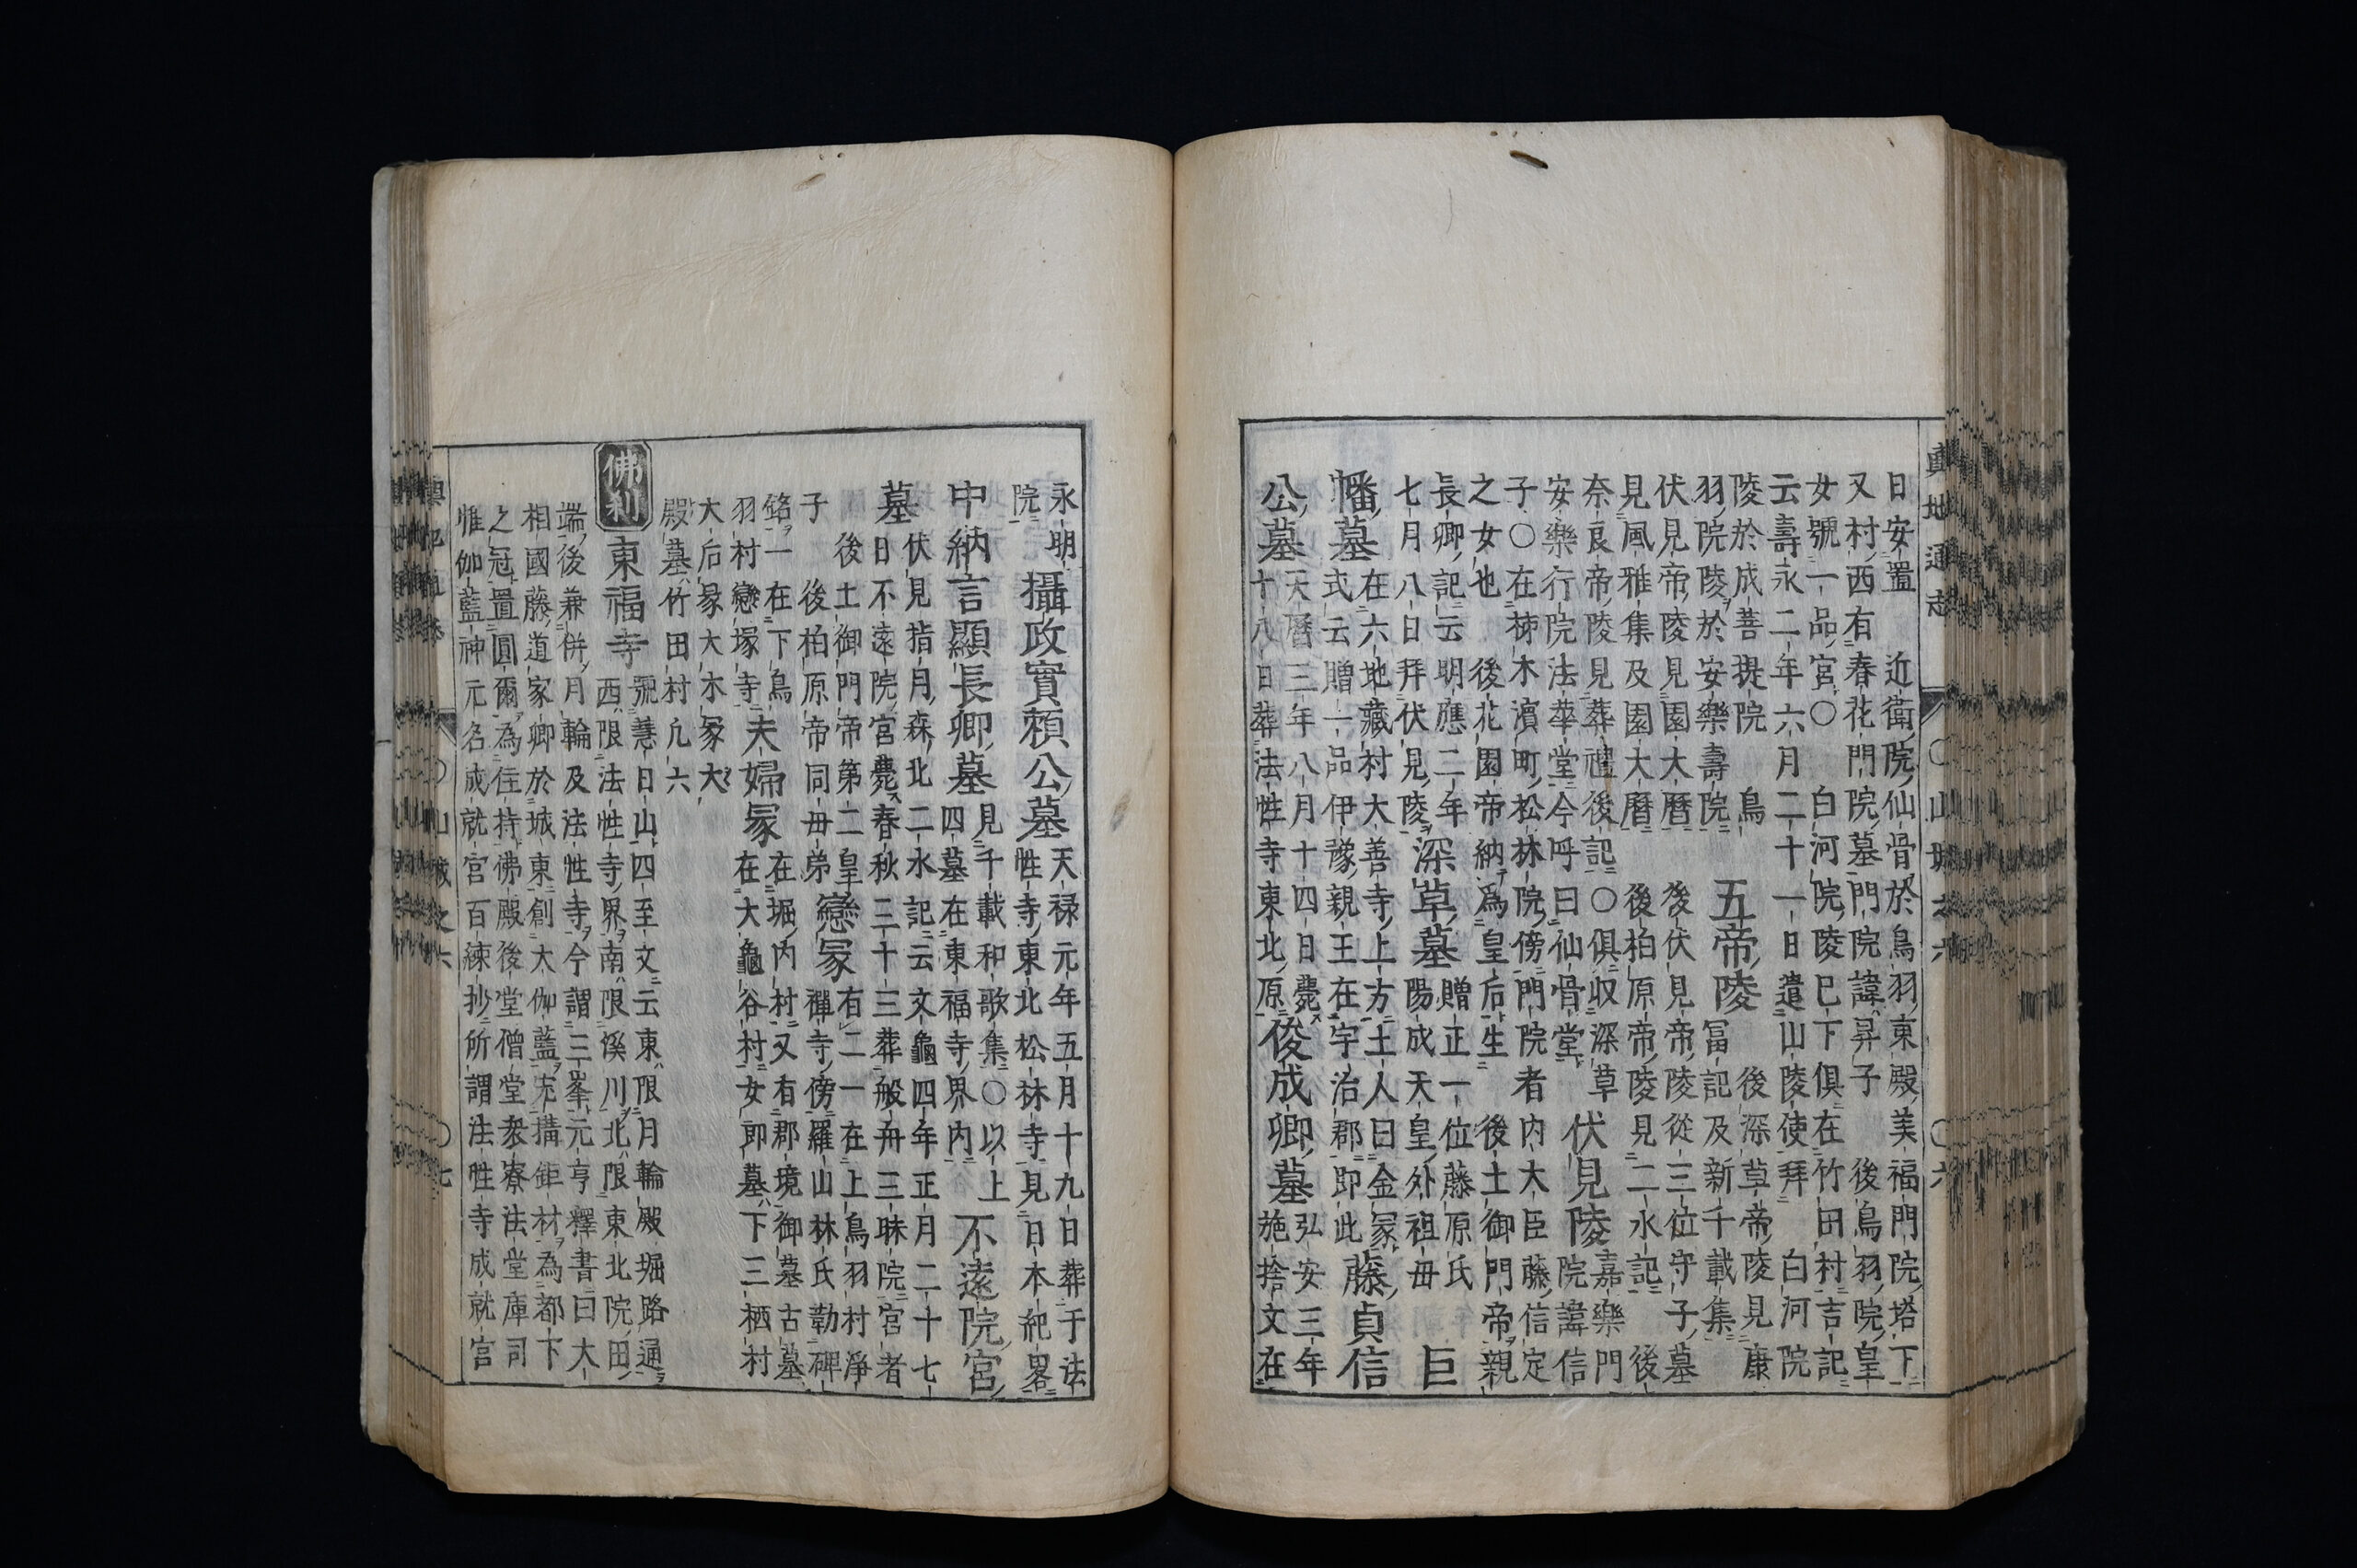 輿地通志 〇山城之六 〇六
日安置　近衛院仙骨於鳥羽東殿美福門院塔下
又村西有春花門院墓門院諱昇子　後鳥羽院皇
女號一品宮〇　白河院陵已下俱在竹田村吉記
云壽永二年六月二十一日遣山陵使拜　白河院
陵於成菩提院　鳥
羽院陵於安樂壽院
五帝陵
後深草帝陵見康
富記及新千載集
伏見帝陵見園大曆　後伏見帝陵從三位守子墓
見風雅集及園大曆　後柏原帝陵見二水記　後
奈良帝陵見葬禮後記〇俱収深草
安樂行院法華堂今呼曰仙骨堂
伏見陵
嘉樂門
院諱信
子〇在栜木濱町松林院傍門院者内大臣藤信定
之女也　後花園帝納爲皇后生　後土御門帝親
長卿記云明應二年
七月八日拜伏見陵
深草墓
贈正一位藤原氏
陽成天皇外祖毋
巨
幡墓
在六地藏村大善寺上方土人曰金冢
式云贈一品伊豫親王在宇治郡即此
藤貞信
公墓
天曆三年八月十四日薨
十八日葬法性寺東北原
俊成卿墓
弘安三年
施捨文在
永明
院
攝政實頼公墓
天禄元年五月十九日葬于法
性寺東北松林寺見日本紀畧
中納言顯長卿墓
見千載和歌集〇以上
四墓在東福寺界内
不遠院宮
墓
伏見指月森北二水記云文龜四年正月二十七
日不遠院宮薨春秋三十三葬般舟三昧院宮者
後土御門帝第二皇
子　後柏原帝同毋弟
戀冢
有二一在上鳥羽村淨
禪寺傍羅山林氏勒碑
銘一在下鳥
羽村戀塚寺
夫婦冢
在堀内村又有郡境御墓古墓
在大龜谷村女即墓下三栖村
大后冢大木冢大
殿墓竹田村凢六
佛刹
東福寺
號慧日山四至文云東限月輪殿堀路通
西限法性寺界南限溪川北限東北院田
端後兼併月輪及法性寺今謂三峯元亨釋書曰大
相國藤道家卿於城東創大伽藍宏搆鉅材為都下
之冠置圓爾為住持佛殿後堂僧堂衆寮法堂庫司
惟伽藍神元名成就宮百練抄所謂法性寺成就宮